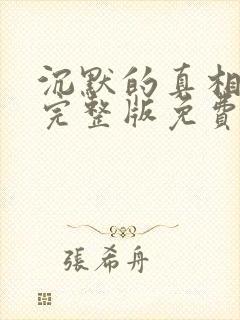 沉默的真相
完整版免費
張希舟